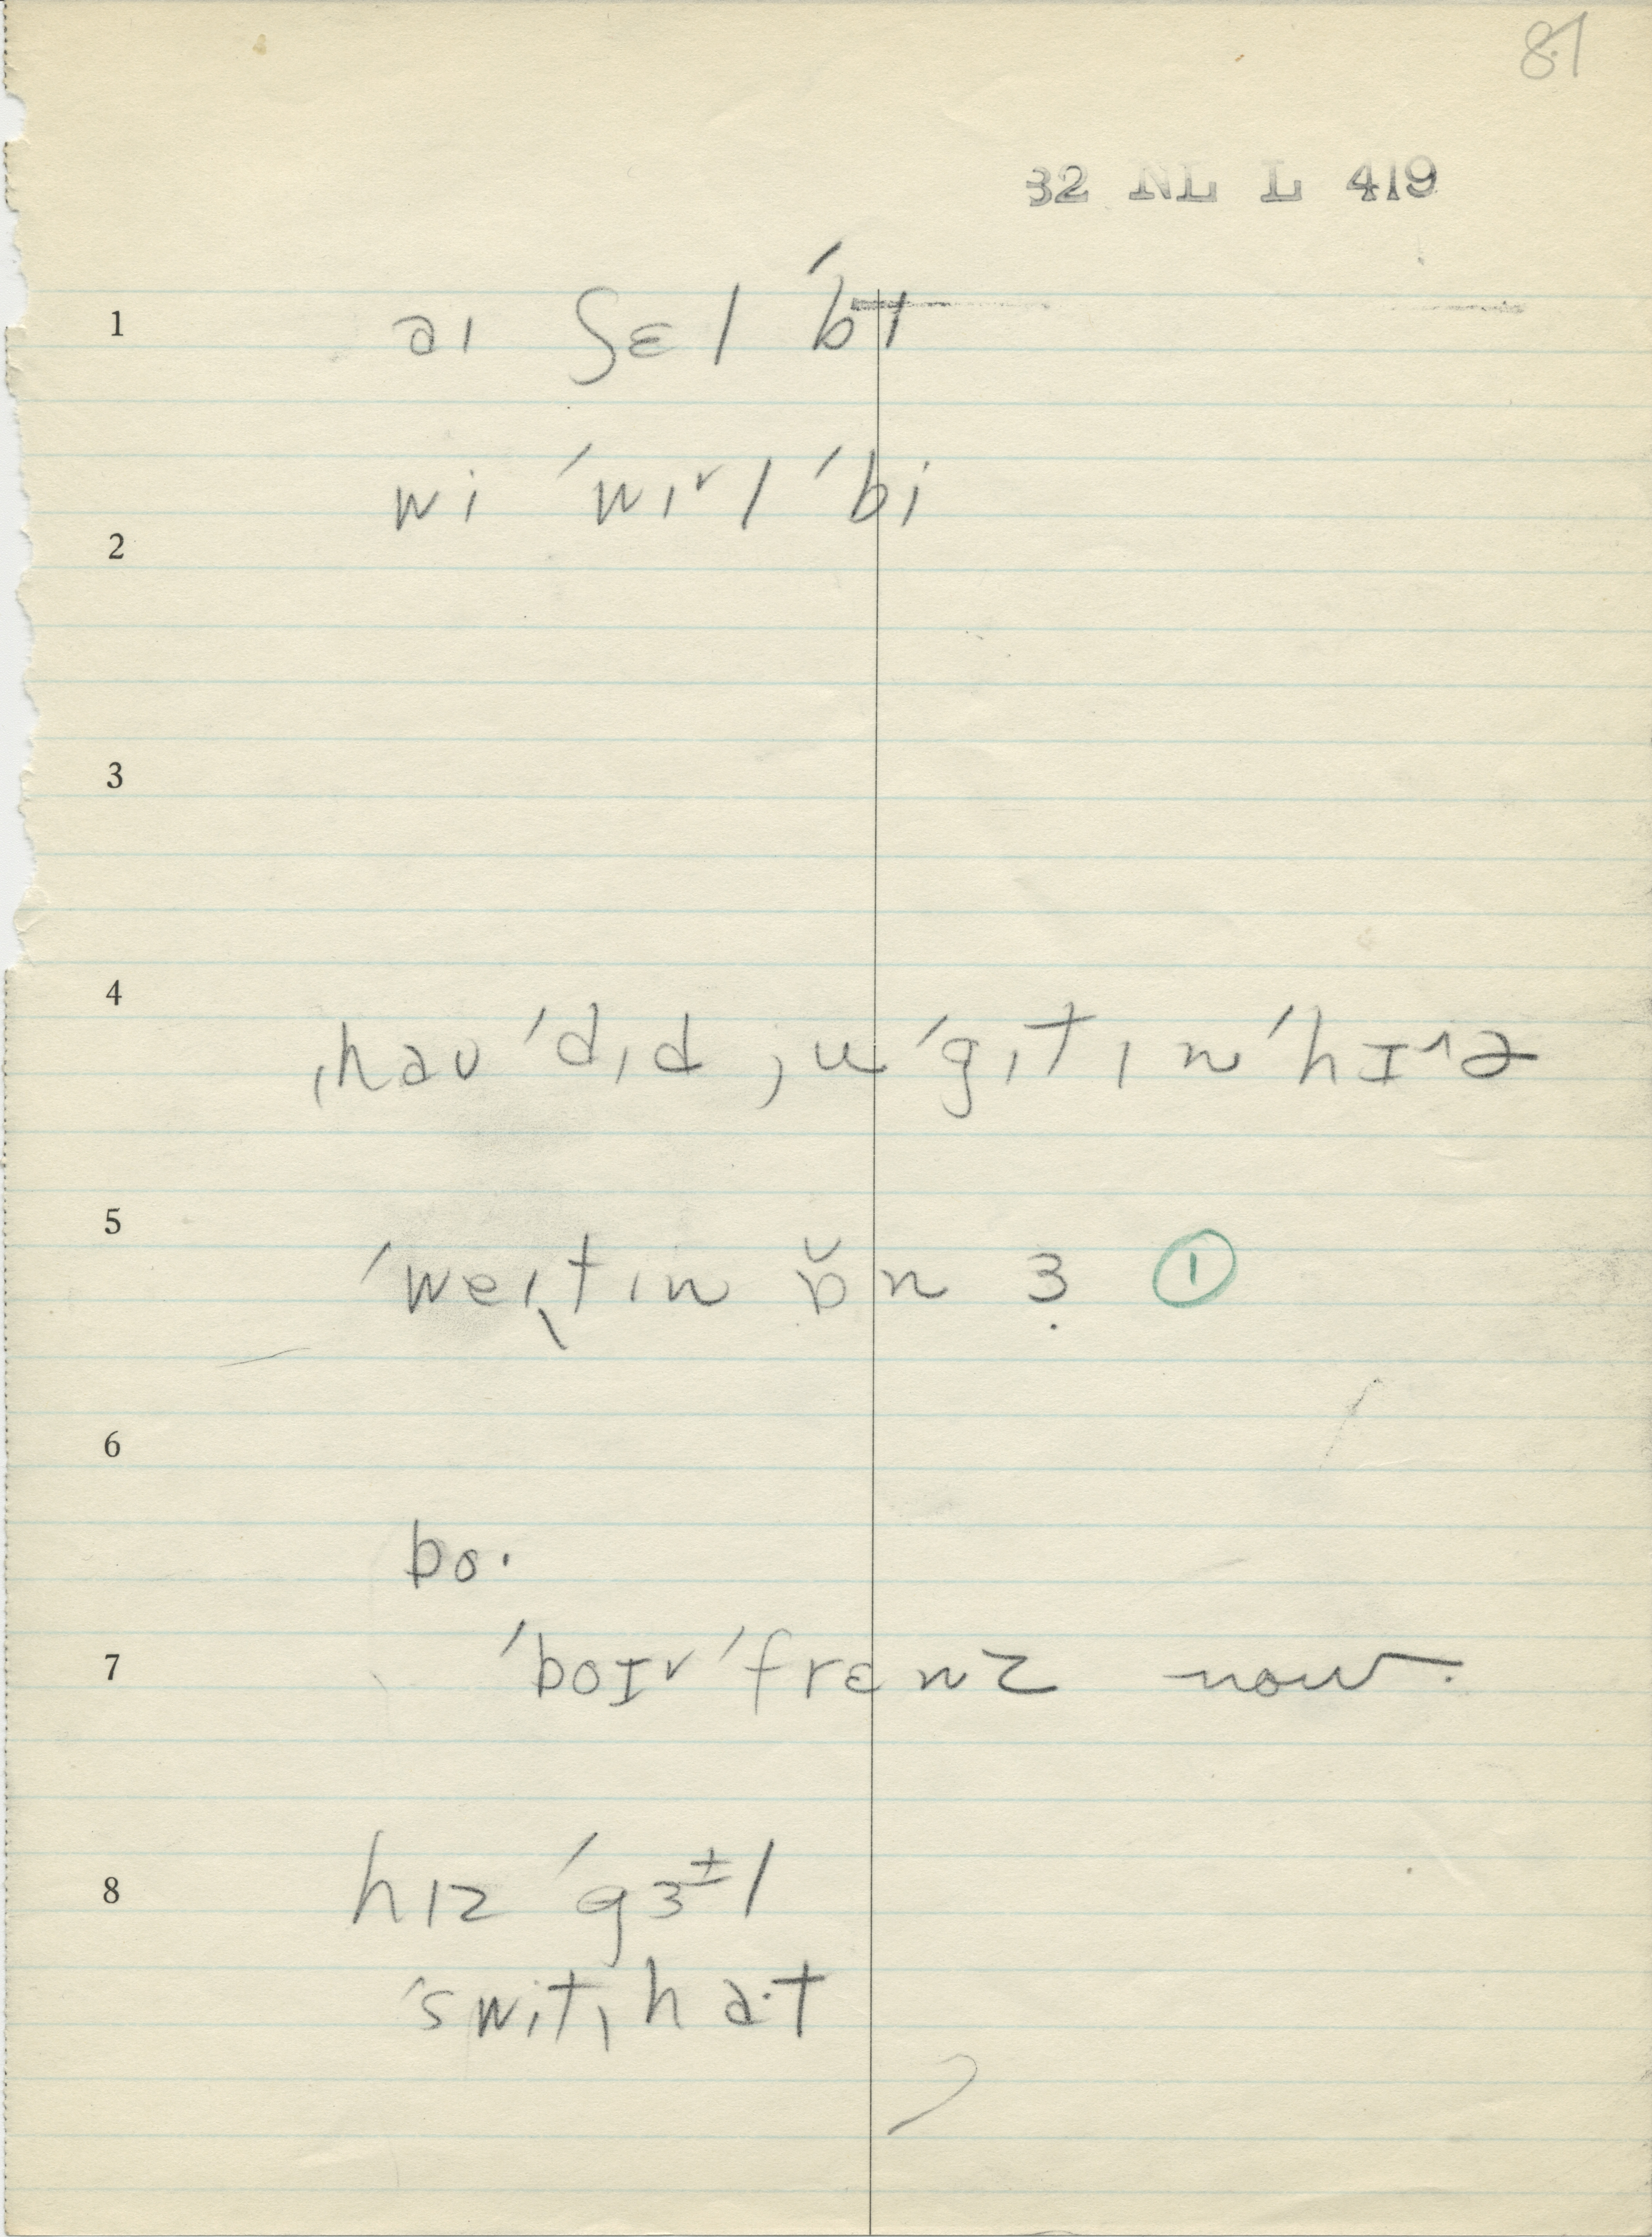 81
32 NL L 419
1 aɪ ʃɛl ˈbɪ
wi ˈwɪ˅l ˈbi
2
3
4
ˌhaʊ ˈdɪd jʉ ˈgɪt ɪn ˈhɪ˄ə
5
ˈweɪtɪn ɒ̆n ɜ̣ ①
6
bo·
7 ˈboɪ˅ ˈfrɛnz now.
8 hɪz ˈgɜ±l
ˈswitˌha·t